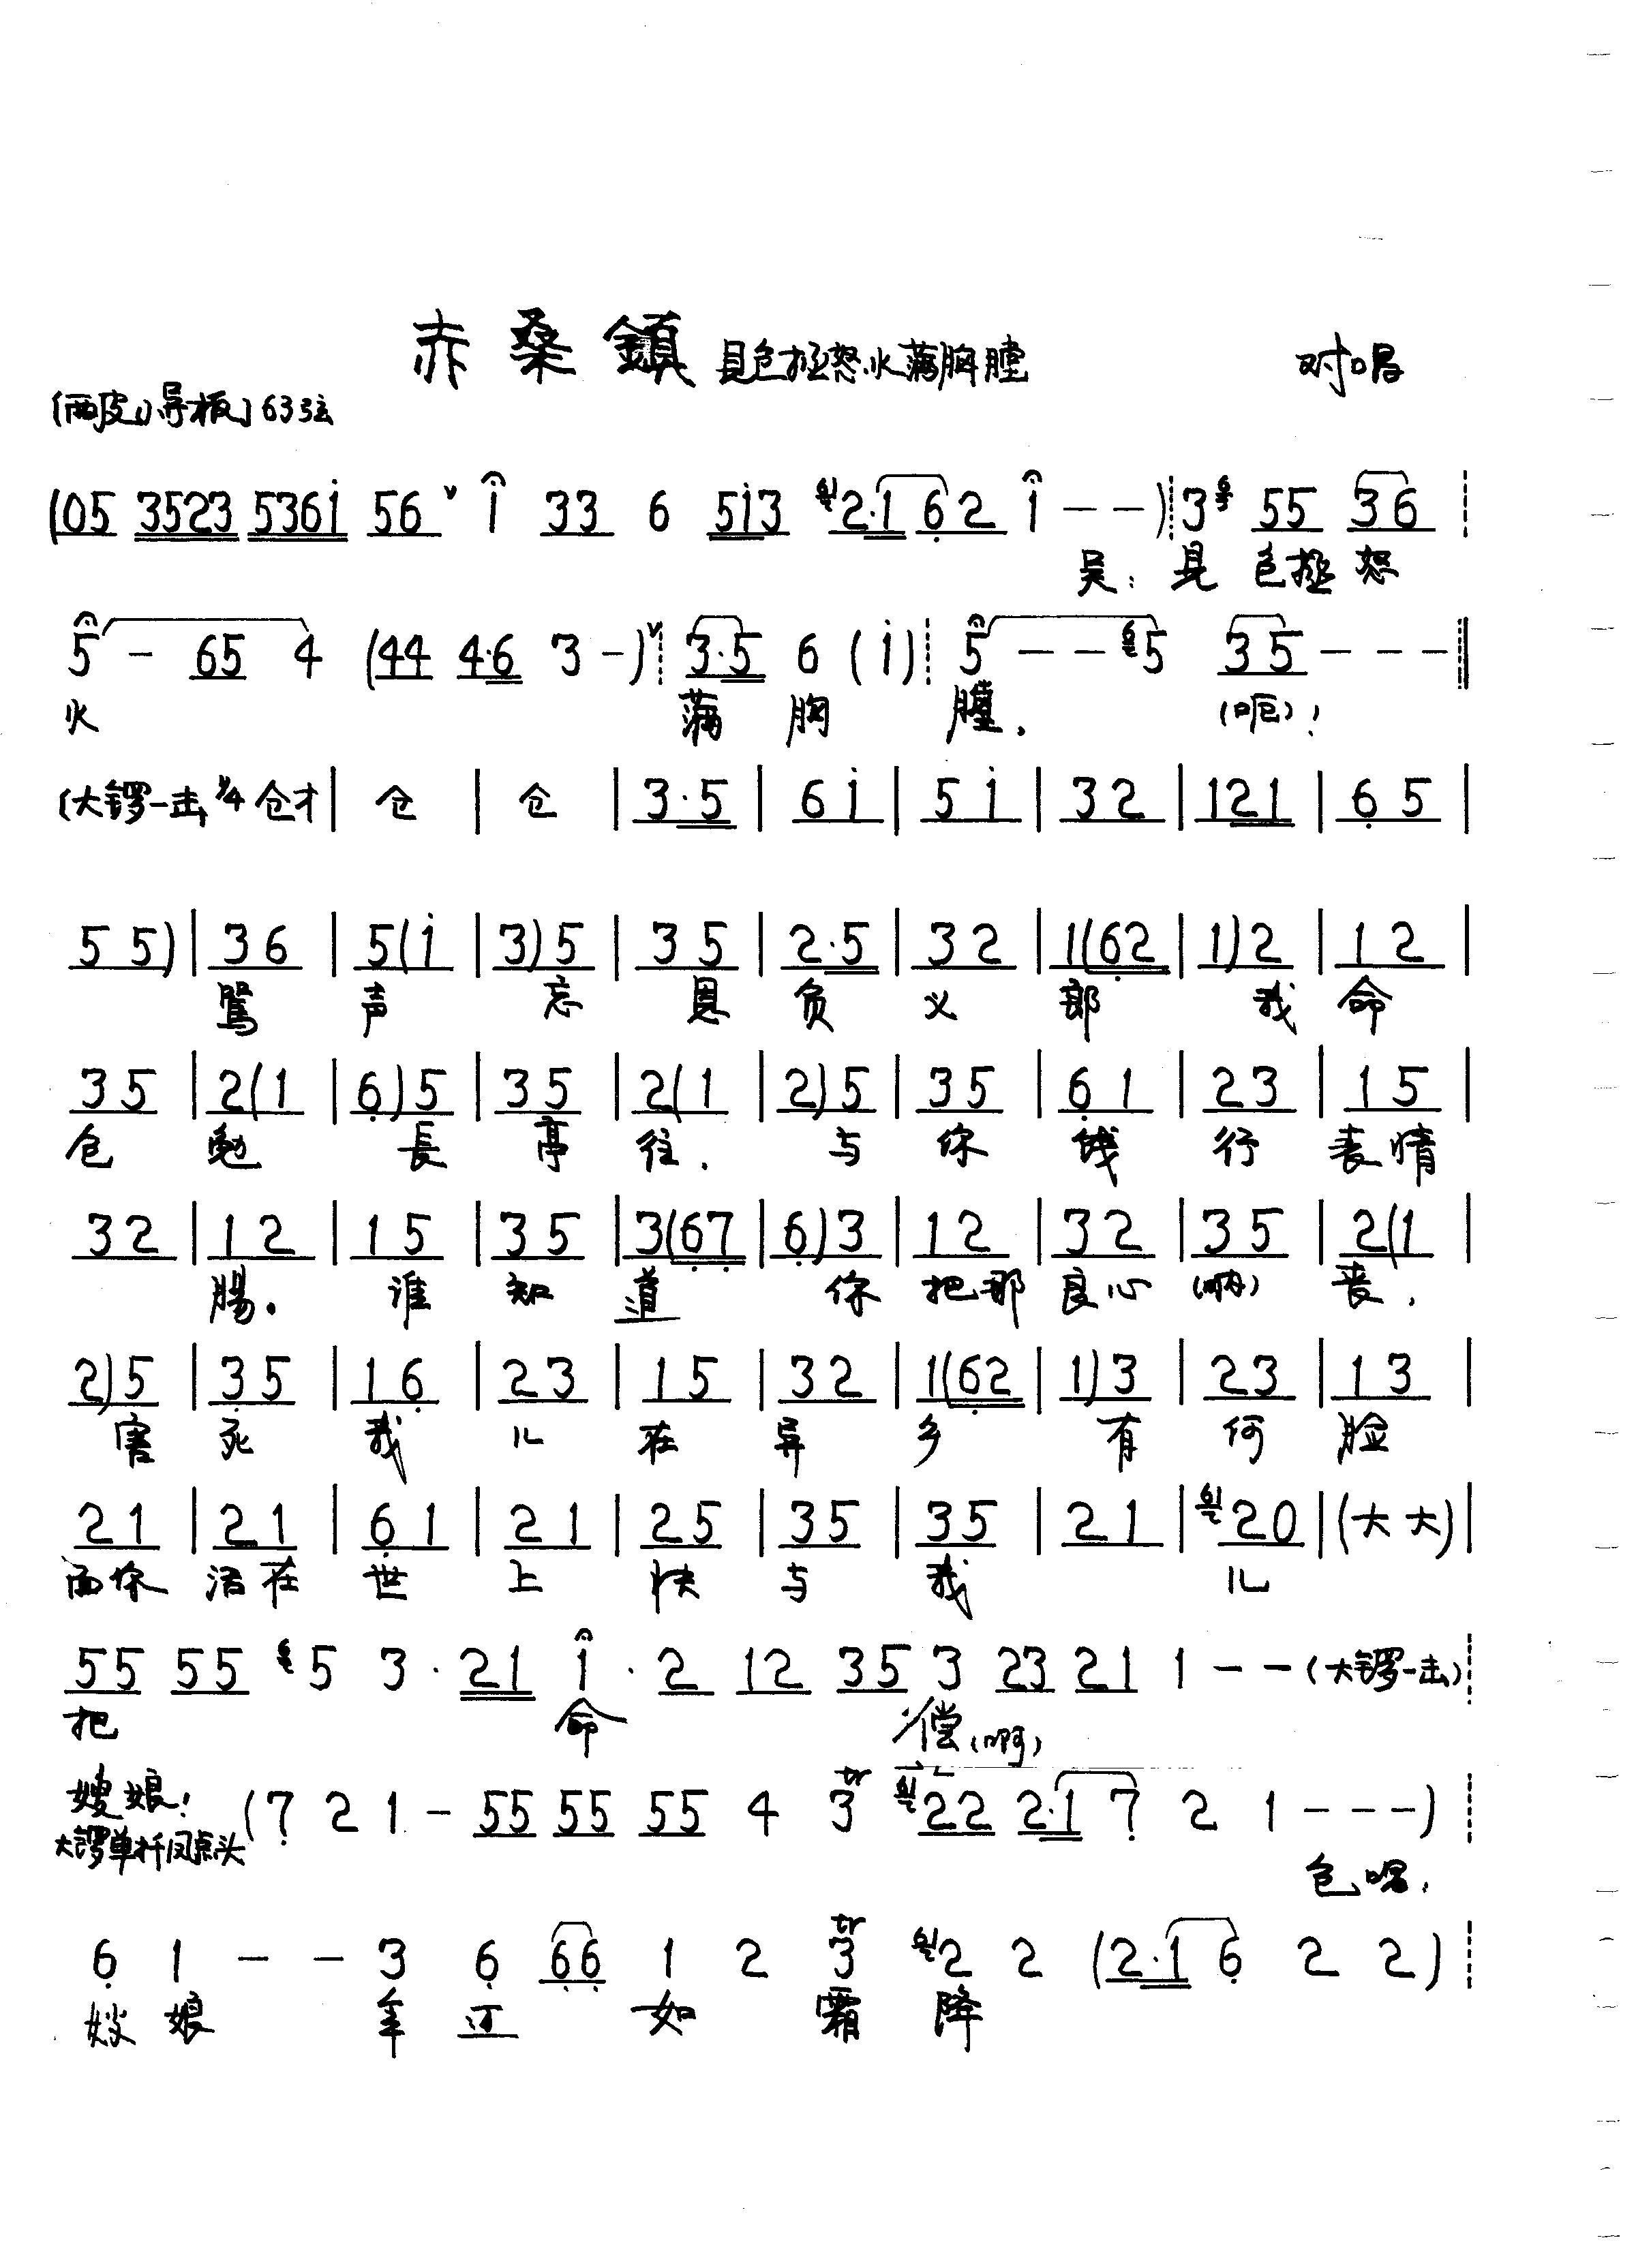 赤桑鎮 見包拯怒火满胸膛 对唱
(西皮)导板) 63弦
(05 3523 536i 56 ∨ i 33 6 5i3 2·1 6 2 i - - ) 3 55 36
吴: 見 包拯 怒
5 - 65 4 (44 4·6 3 - )∨ 3·5 6 (i) 5 - - 5 35 - - -
火 满 胸 膛. (呃)!
(大锣一击 1/4 仓才 | 仓 | 仓 | 3·5 | 6i | 5i | 32 | 121 | 65 |
55) | 36 | 5(i | 3)5 | 35 | 2·5 | 32 | 1(62 | 1)2 | 12 |
駡 声 忘 恩 负 义 郎 我 命
35 | 2(1 | 6)5 | 35 | 2(1 | 2)5 | 35 | 61 | 23 | 15 |
包 勉 長 亭 往. 与 你 饯 行 表情
32 | 12 | 15 | 35 | 3(67 | 6)3 | 12 | 32 | 35 | 2(1 |
腸。 谁 知 道 你 把那 良心 (呐) 丧,
2)5 | 35 | 16 | 23 | 15 | 32 | 1(62 | 1)3 | 23 | 13 |
害 死 我 儿 在 异 乡 有 何 脸
21 | 21 | 61 | 21 | 25 | 35 | 35 | 21 | 20 | (大大) |
面你 活在 世 上 快 与 我 儿
55 55 5 3 · 21 i · 2 12 35 3 23 21 1 - - (大锣一击)
把 命 偿 (啊)
嫂娘! (7 2 1 - 55 55 55 4 3 22 2·1 7 2 1 - - - )
大锣单扦凤点头
包唱.
6 1 - - 3 6 66 1 2 3 2 2 (2·1 6 2 2)
嫂 娘 年 迈 如 霜 降